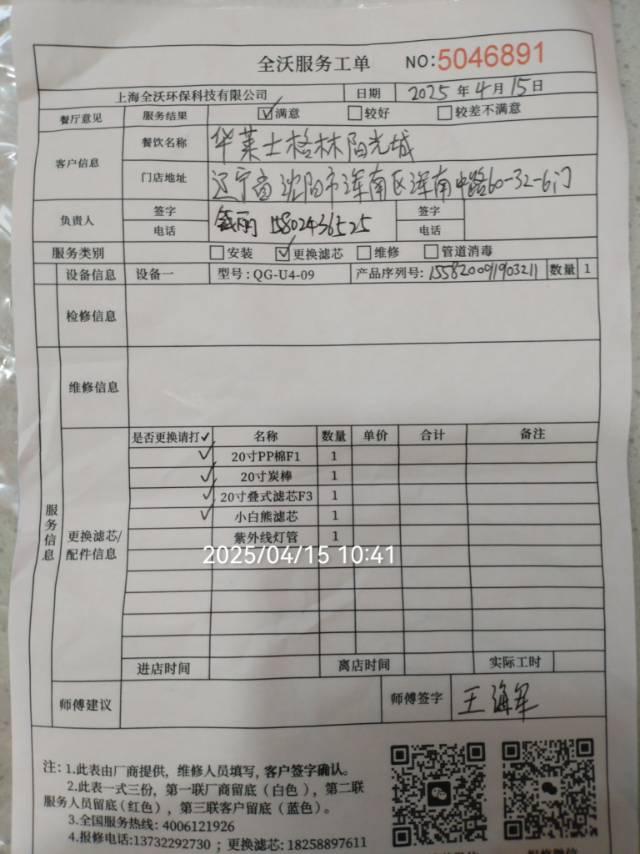 全沃服务工单 NO:5046891
上海全沃环保科技有限公司 日期 2025年4月15日
餐厅意见 服务结果 ☑满意 □较好 □较差不满意
客户信息 餐饮名称 华莱士格林阳光城
门店地址 辽宁省沈阳市浑南区浑南中路60-32-6门
负责人 签字 丽 签字
电话 15802436525 电话
服务类别 □安装 ☑更换滤芯 □维修 □管道消毒
设备信息 设备一 型号:QG-U4-09 产品序列号: 数量 1
检修信息
维修信息
服务信息
更换滤芯/配件信息
是否更换请打✓ 名称 数量 单价 合计 备注
✓ 20寸PP棉F1 1
✓ 20寸炭棒 1
✓ 20寸叠式滤芯F3 1
✓ 小白熊滤芯 1
紫外线灯管 1
2025/04/15 10:41
进店时间 离店时间 实际工时
师傅建议 师傅签字 王海军
注: 1.此表由厂商提供，维修人员填写，客户签字确认。
2.此表一式三份，第一联厂商留底（白色），第二联
服务人员留底(红色)，第三联客户留底（蓝色）。
3.全国服务热线: 4006121926
4.报修电话:13732292730；更换滤芯: 18258897611